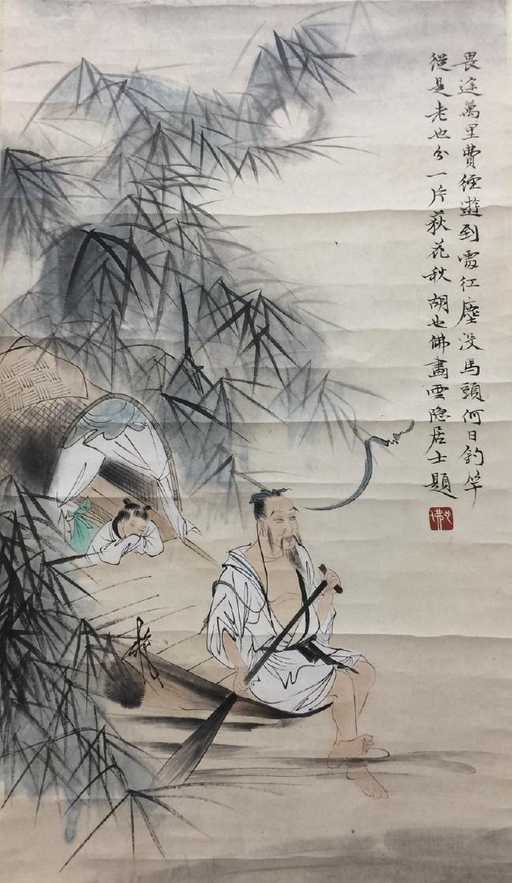 畏途萬里費經遊到處紅塵沒馬頭何日釣竿
從是老也分一片荻花秋胡也佛畫雲隐居士題
也佛